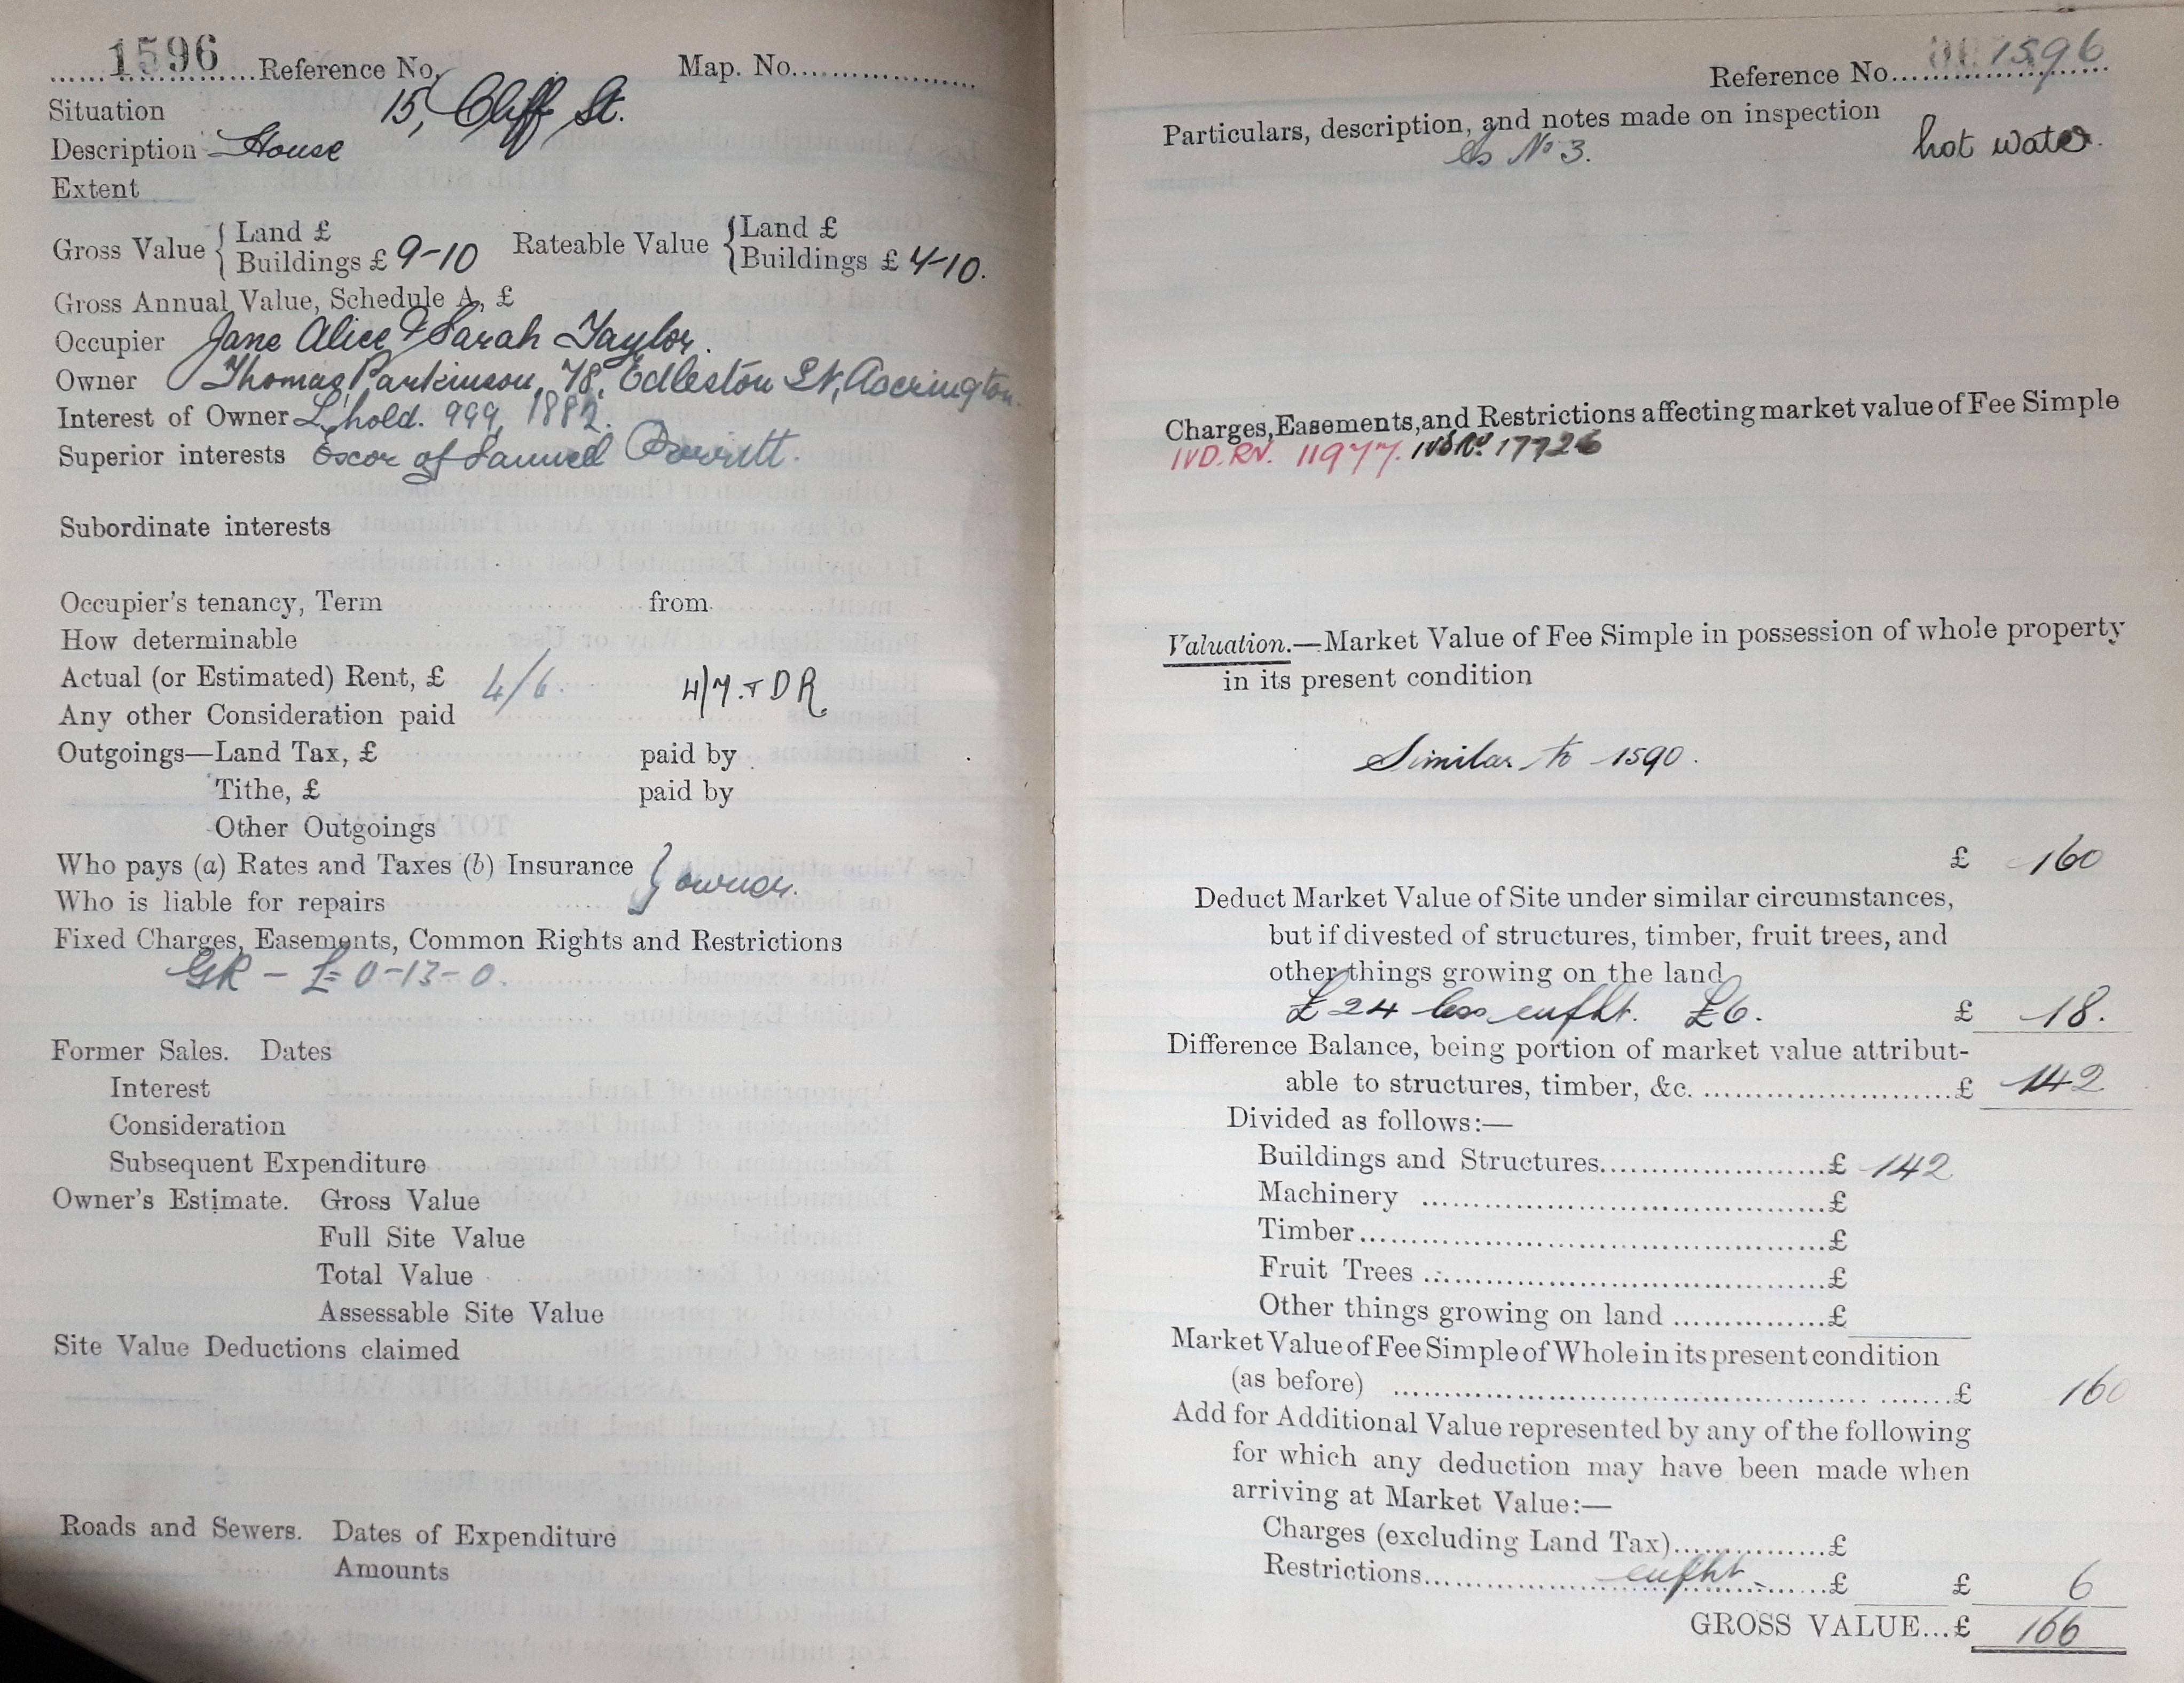 1596 Reference No. Map. No.
Situation 15, Cliff St.
Description House
Extent
Gross Value { Land £
Buildings £ 9-10 Rateable Value { Land £
Buildings £ 4-10.
Gross Annual Value, Schedule A, £
Occupier Jane Alice & Sarah Taylor.
Owner Thomas Parkinson, 78, Edleston St, Accrington.
Interest of Owner L'hold. 999, 1882.
Superior interests Exor of Samuel
Subordinate interests
Occupier's tenancy, Term from
How determinable
Actual (or Estimated) Rent, £ 4/6. 4/7. T D R
Any other Consideration paid
Outgoings—Land Tax, £ paid by
Tithe, £ paid by
Other Outgoings
Who pays (a) Rates and Taxes (b) Insurance } owner.
Who is liable for repairs
Fixed Charges, Easements, Common Rights and Restrictions
GR - £ 0-13-0.
Former Sales. Dates
Interest
Consideration
Subsequent Expenditure
Owner's Estimate. Gross Value
Full Site Value
Total Value
Assessable Site Value
Site Value Deductions claimed
Roads and Sewers. Dates of Expenditure
Amounts
Reference No. 1596
Particulars, description, and notes made on inspection
As No 3. hot water.
Charges, Easements, and Restrictions affecting market value of Fee Simple
IVD. RN. 11977. IVD RN. 17726
Valuation.—Market Value of Fee Simple in possession of whole property
in its present condition
Similar to 1590.
£ 160
Deduct Market Value of Site under similar circumstances,
but if divested of structures, timber, fruit trees, and
other things growing on the land
£24 less enfht. £6. £ 18.
Difference Balance, being portion of market value attribut-
able to structures, timber, &c. £ 142
Divided as follows:—
Buildings and Structures £ 142
Machinery £
Timber £
Fruit Trees £
Other things growing on land £
Market Value of Fee Simple of Whole in its present condition
(as before) £ 160
Add for Additional Value represented by any of the following
for which any deduction may have been made when
arriving at Market Value:—
Charges (excluding Land Tax) £
Restrictions enfht. £ £ 6
GROSS VALUE...£ 166